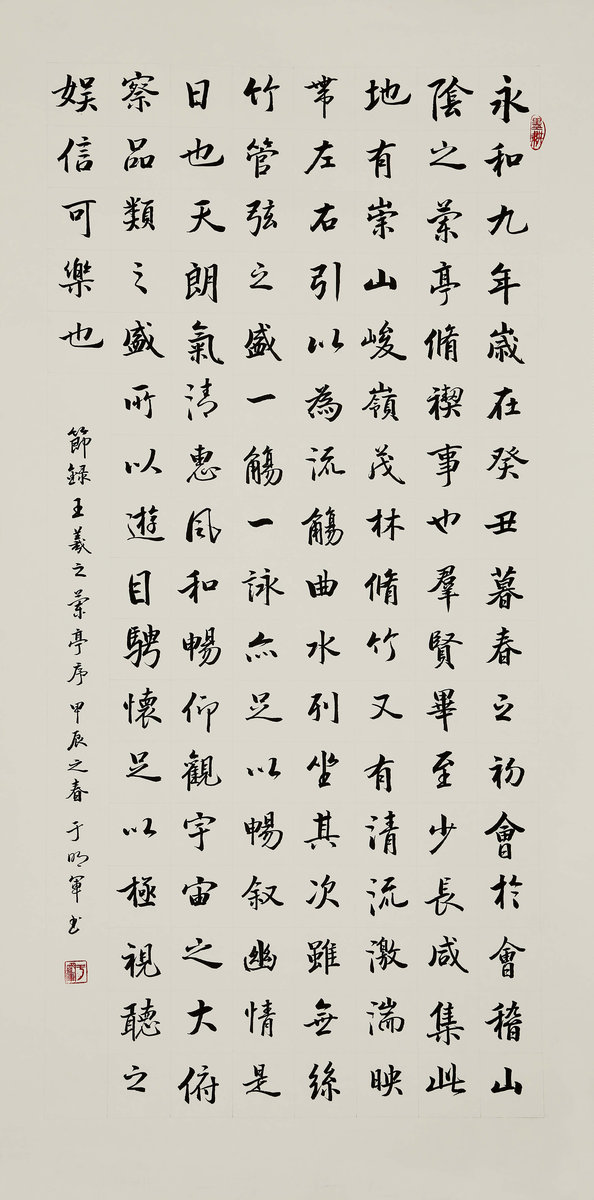 永和九年歲在癸丑暮春之初會於會稽山
陰之蘭亭脩禊事也羣賢畢至少長咸集此
地有崇山峻嶺茂林脩竹又有清流激湍映
帶左右引以為流觴曲水列坐其次雖無絲
竹管弦之盛一觴一詠亦足以暢叙幽情是
日也天朗氣清惠風和暢仰觀宇宙之大俯
察品類之盛所以遊目騁懷足以極視聽之
娛信可樂也
節録王羲之蘭亭序甲辰之春于明軍书